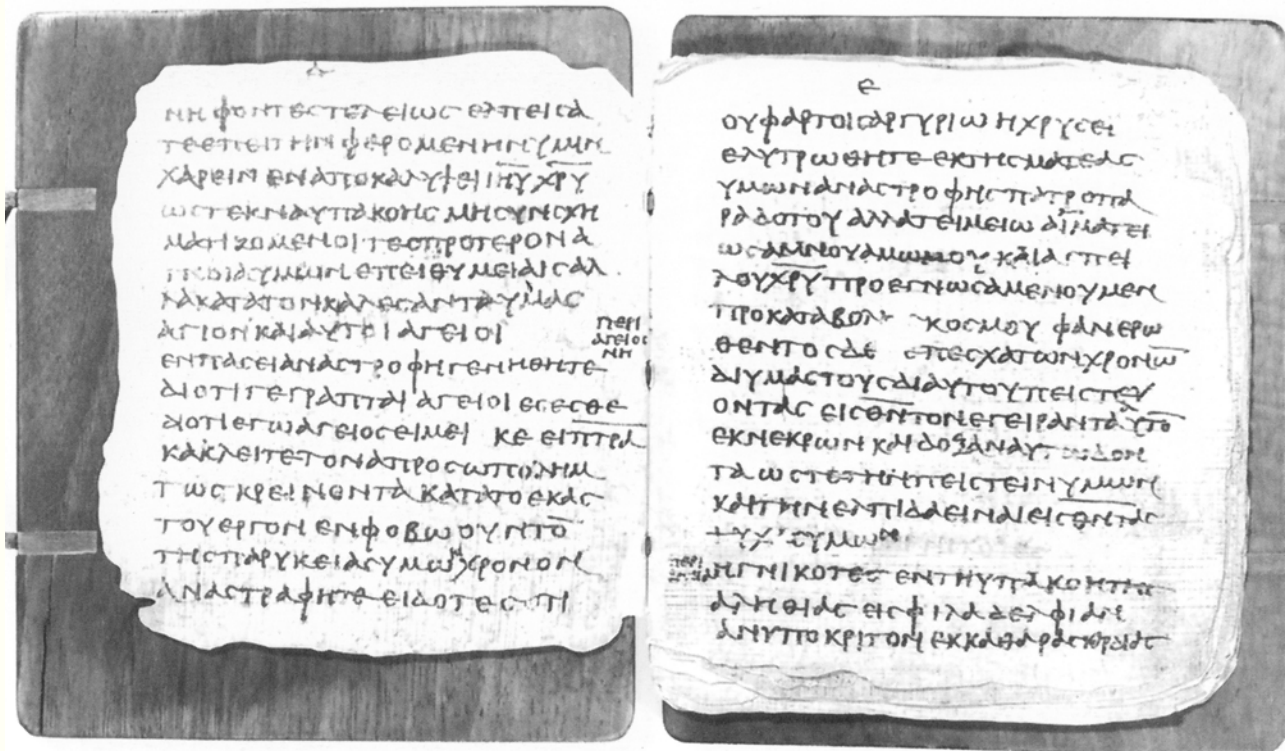 Δ
ΝΗΦΟΝΤΕϹΤΕΛΕΙΩϹΕΛΠΕΙϹΑ
ΤΕΕΠΕΙΤΗΝΦΕΡΟΜΕΝΗΝΥΜΙΝ
ΧΑΡΕΙΝΕΝΑΠΟΚΑΛΥΨΕΙΙΗΥ ΧΡΥ
ΩϹΤΕΚΝΑΥΠΑΚΟΗϹΜΗϹΥΝϹΧΗ
ΜΑΤΙΖΟΜΕΝΟΙΤΕϹΠΡΟΤΕΡΟΝΑ
ΥΜΩΝΕΠΕΙΘΥΜΕΙΑΙϹΑΛ
ΛΑΚΑΤΑΤΟΝΚΑΛΕϹΑΝΤΑΥΜΑϹ
ΑΓΙΟΝΚΑΙΑΥΤΟΙΑΓΕΙΟΙ
ΠΕΡΙ
ΑΓΕΙΟϹ
ΝΗ
ΕΝΠΑϹΕΙΑΝΑϹΤΡΟΦΗΓΕΝΗΘΗΤΕ
ΔΙΟΤΙΓΕΓΡΑΠΤΑΙΑΓΕΙΟΙΕϹΕϹΘΕ
ΔΙΟΤΙΕΓΩΑΓΕΙΟϹΕΙΜΕΙ ΚΕ ΕΙΠΤΡΑ
ΚΑΚΛΕΙΤΕΤΟΝΑΠΡΟϹΩΠΟΛΗΜ
ΤΩϹΚΡΕΙΝΟΝΤΑΚΑΤΑΤΟΕΚΑϹ
ΤΟΥΕΡΓΟΝΕΝΦΟΒΩΟΥΝΤΟ
ΤΗϹΠΑΡΥΚΕΙΑϹΥΜΩΝΧΡΟΝΟΝ
ΑΝΑϹΤΡΑΦΗΤΕΕΙΔΟΤΕϹΟΤΙ
Ε
ΟΥΦΑΡΤΟΙϹΑΡΓΥΡΙΩΗΧΡΥϹΕΙ
ΕΛΥΤΡΩΘΗΤΕΕΚΤΗϹΜΑΤΕΑϹ
ΥΜΩΝΑΝΑϹΤΡΟΦΗϹΠΑΤΡΟΠΑ
ΡΑΔΟΤΟΥΑΛΛΑΤΕΙΜΕΙΩΑΙΜΑΤΕΙ
ΩϹΑΜΝΟΥΑΜΩΜΟΥΚΑΙΑϹΠΕΙ
ΛΟΥΧΡΥΠΡΟΕΓΝΩϹΑΜΕΝΟΥΜΕΝ
ΠΡΟΚΑΤΑΒΟΛ ΚΟϹΜΟΥΦΑΝΕΡΩ
ΘΕΝΤΟϹΔΕ ΕΠΕϹΧΑΤΩΝΧΡΟΝΩ
ΔΙΥΜΑϹΤΟΥϹΔΙΑΥΤΟΥΠΕΙϹΤΕΥ
ΟΝΤΑϹΕΙϹΘΝΤΟΝΕΓΕΙΡΑΝΤΑΑΥΤΟ
ΕΚΝΕΚΡΩΝΚΑΙΔΟΞΑΝΑΥΤΩΔΟΝ
ΤΑΩϹΤΕΤΗΝΠΕΙϹΤΕΙΝΥΜΩΝ
ΚΑΙΤΗΝΕΛΠΙΔΑΕΙΝΑΙΕΙϹΘΝΤΑϹ
ΨΥΧ ΥΜΩ
ΠΕΡΙ
ΗΓΝΙΚΟΤΕϹΕΝΤΗΥΠΑΚΟΗΤΗϹ
ΑΛΗΘΙΑϹΕΙϹΦΙΛΑΔΕΛΦΙΑΝ
ΑΝΥΠΟΚΡΙΤΟΝΕΚΚΑΘΑΡΑϹΚΡΔΙΑϹ